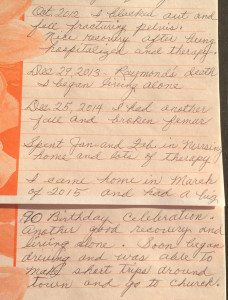 Oct. 2012 I blacked out and
fell fracturing pelvis.
Nice recovery after being
hospitalized and therapy.
Dec 29, 2013 - Raymond's death
I began living alone
Dec 25, 2014 I had another
fall and broken femur
Spent Jan and Feb in Nursing
home and lots of therapy
I came home in March
of 2015 and had a big
90 Birthday Celebration.
Another good recovery and
living alone. Soon began
driving and was able to
make short trips around
town and go to church.